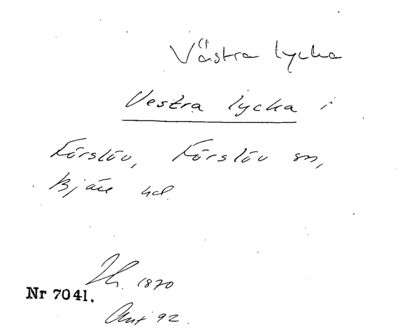 Västra lycka
Vestra lycka i
Förslöv, Förslöv sn,
Bjäre hd.
1870
Nr 7041.
92.